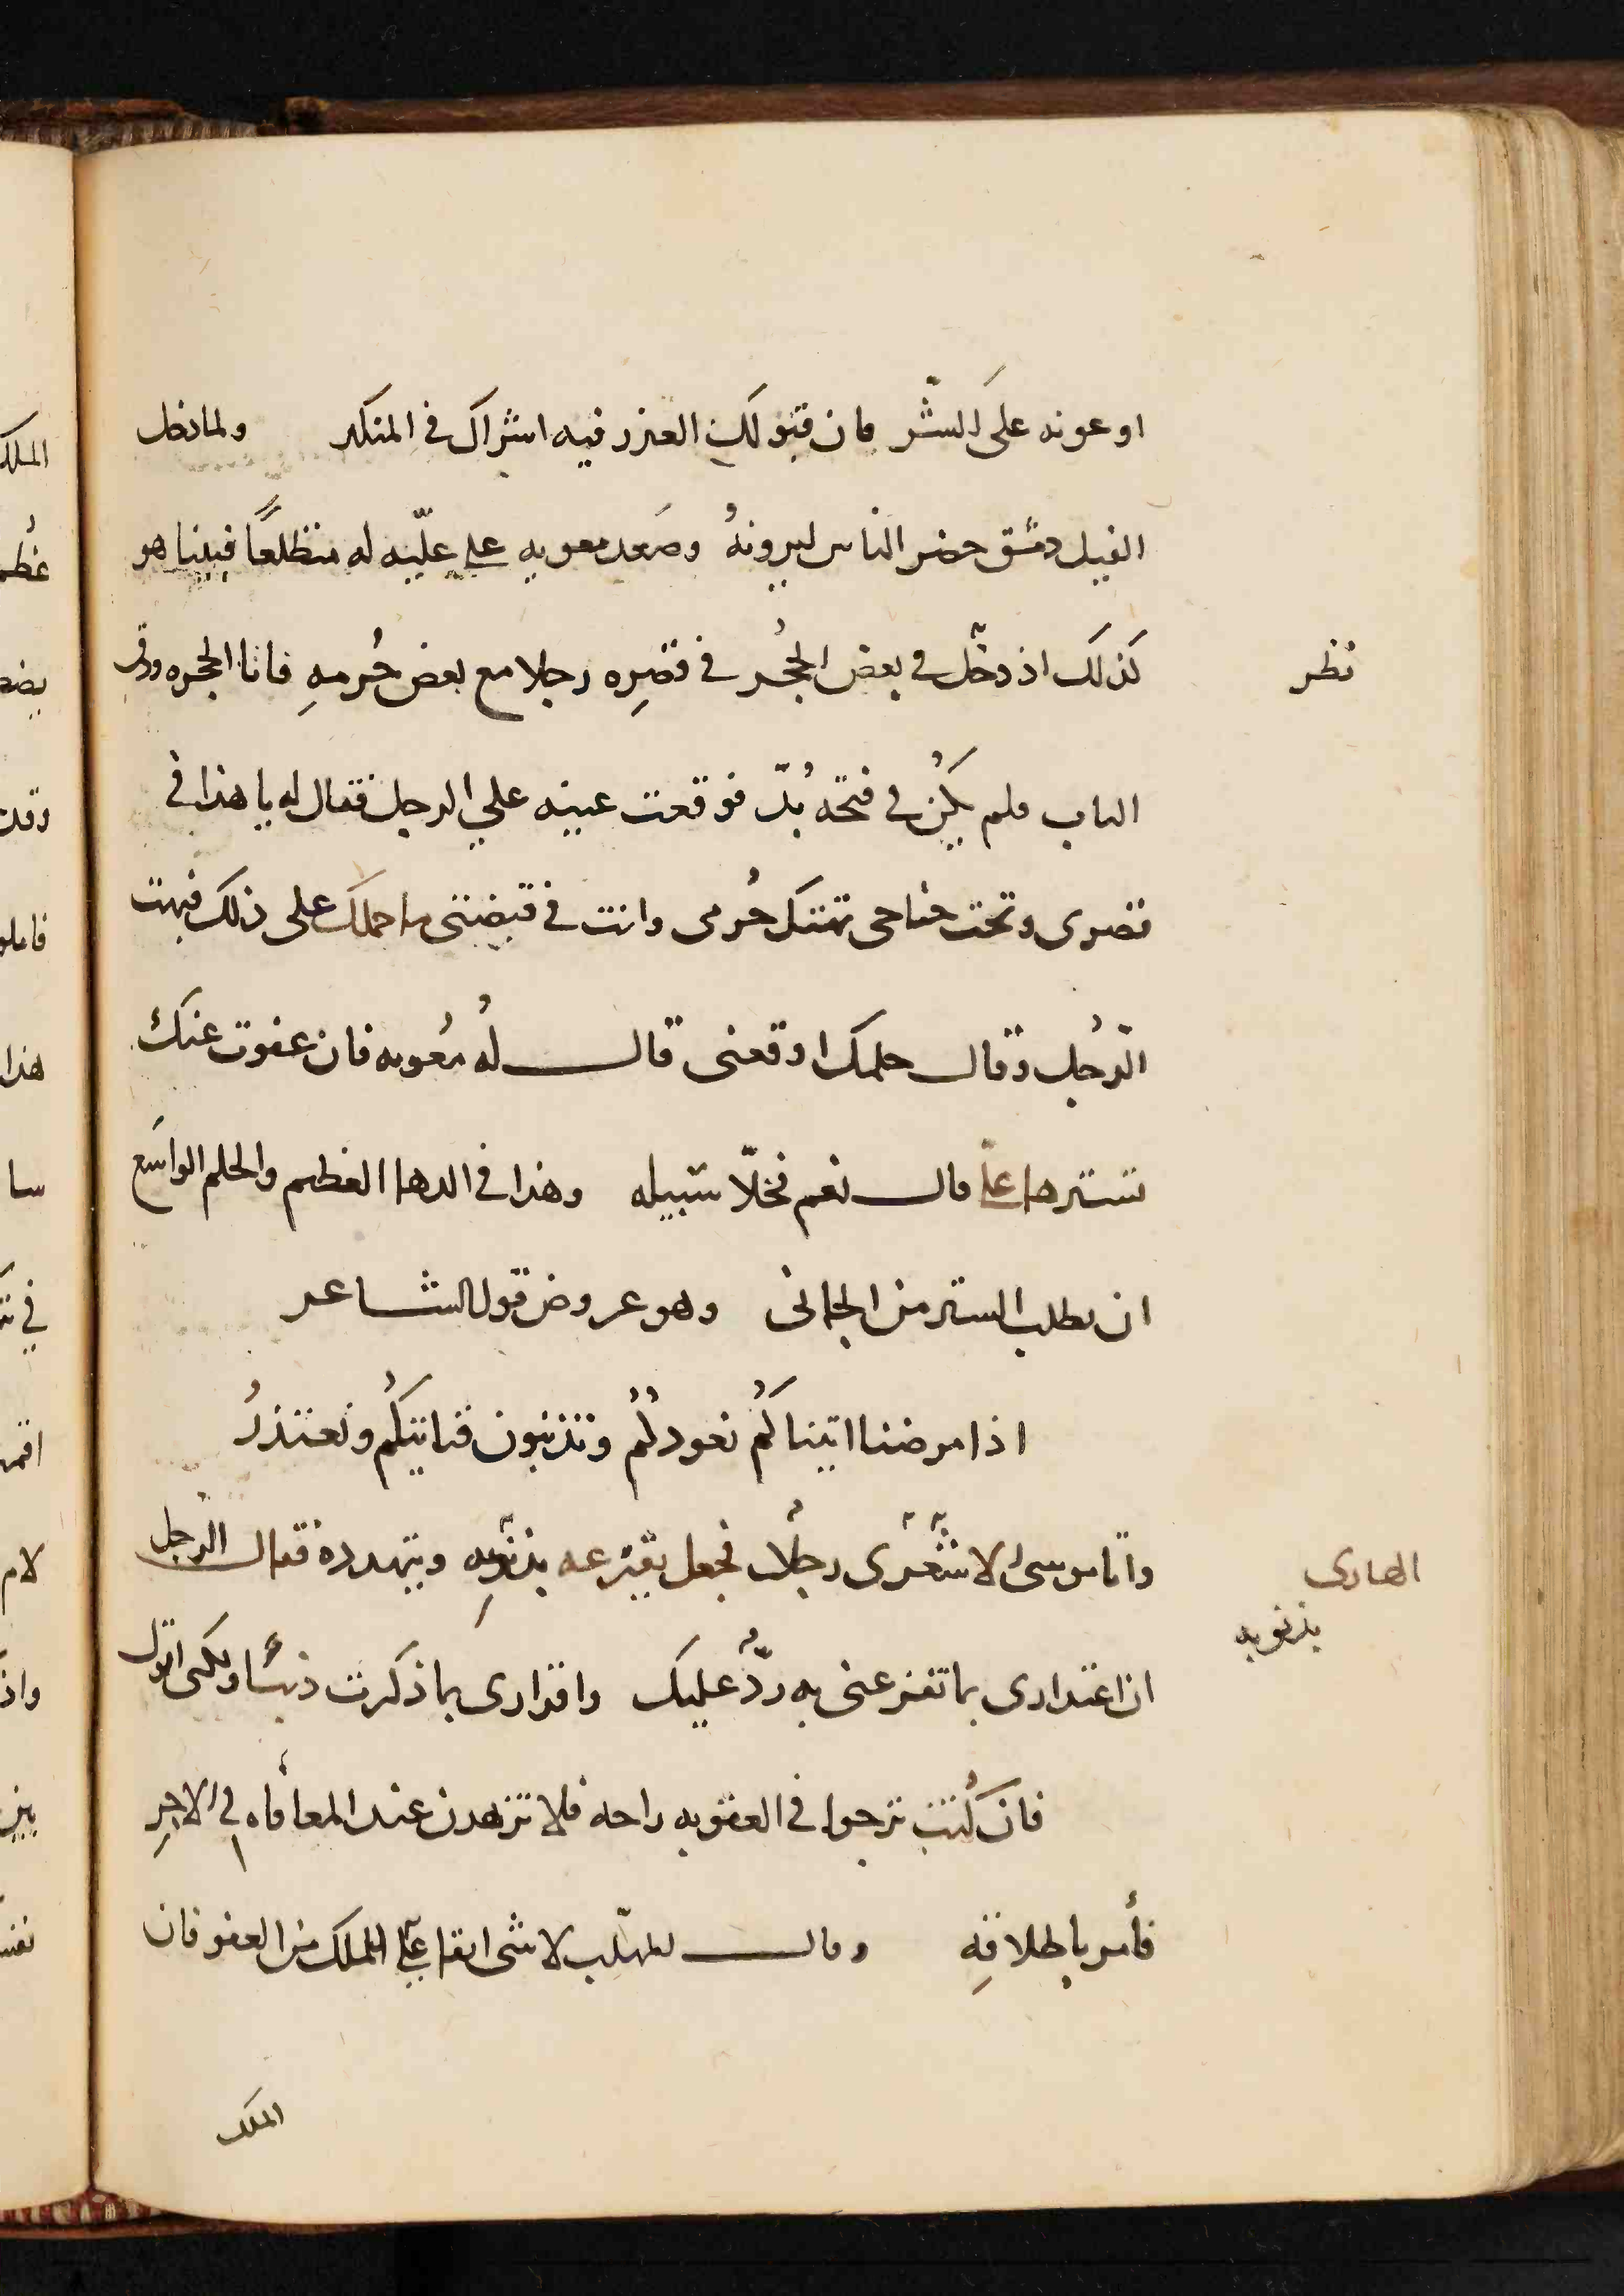 او عونه على الشر فان قبولك العذر فيه اشراك في المنكر ولما دخل
الفيل دمشق حضر الناس ليرونهُ وصَعد معويه على علّيه له متطلعًا فبينا هو
كذلك اذ دخل في بعض الحُجر في قصرِه رجلا مع بعض حُرمهِ فاتا الحجره ودق
نظر
الباب فلم يكُن في فتحه بُدّ فوقعت عينه علي الرجل فقال له يا هذا في
قصرى وتحت جناحى تهتك حُرمى وانت في قبضتى ما حملك على ذلك فبهت
الرّجُل وقال حلمك اوقعنى قال لهُ مُعويه فان عفوت عنك
تسترها علىّ قال نعم فخلّا سبيله وهذا في الدها العظيم والحلم الواسَع
ان يطلب الستر من الجانى وهو عروض قول الشاعر
اذا مرضنا اتيناكُم نعودكُمُ وتذنبون فناتيكُم ونعتذرُ
واتا موسى الاشعرى رجلًا فجعل يقرعه بذنوبه ويتهدده فقال الرجل
الهادى
بذنوبه
ان اعتذارى بما تقرعنى به ردُّ عليك واقرارى بما ذكرت ذنبًا ولكنى اقول
فان كُنتَ ترجوا في العقوبه راحه فلا تزهدن عند المعافاه في الاجرِ
فأمر باطلاقهِ وقال المهلّب لا شى ابقا علىّ الملك من العفو فان
الملك